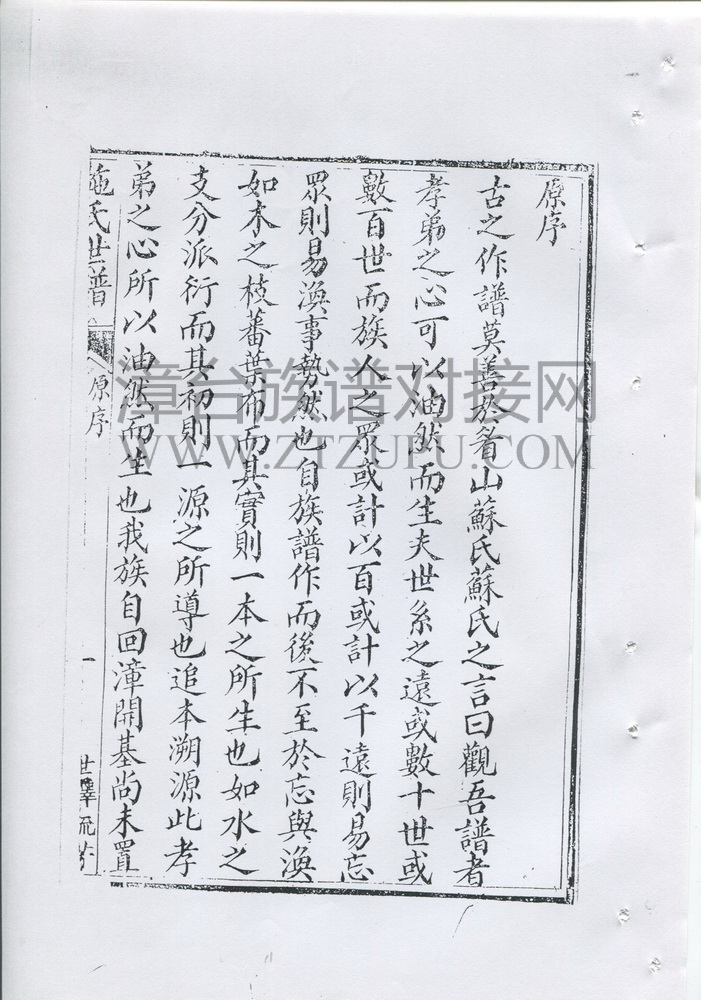 原序
古之作譜莫善於眉山蘇氏蘇氏之言曰觀吾譜者
孝弟之心可以油然而生夫世系之遠或數十世或
數百世而族人之眾或計以百或計以千遠則易忘
眾則易渙事勢然也自族譜作而後不至於忘與渙
如木之枝蕃葉布而其實則一本之所生也如水之
支分派衍而其初則一源之所導也追本溯源此孝
弟之心所以油然而生也我族自回漳開基尚未置
施氏世譜
原序
一
世澤流芳
漳台族谱对接网
WWW.ZTZUPU.COM